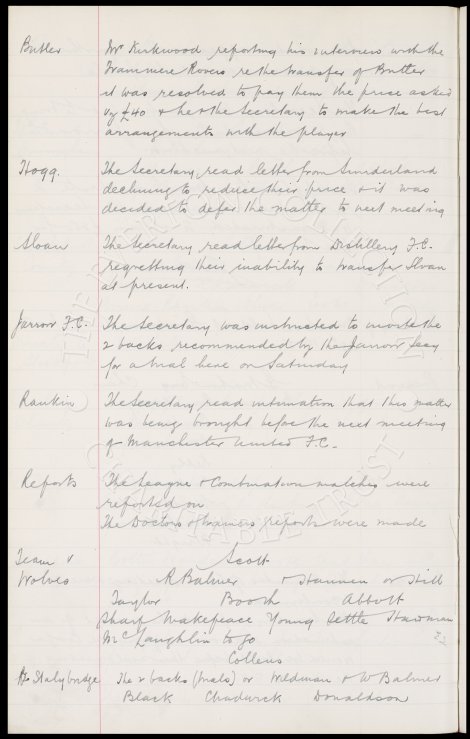 Butler Mr Kirkwood reporting his interview with the
Tranmere Rovers re the transfer of Butler
it was resolved to pay them the price asked
vz £40 & he & the Secretary to make the best
arrangements with the player
Hogg. The Secretary read letter from Sunderland
declining to reduce their price & it was
decided to defer the matter to next meeting
Sloan The Secretary read letter from Distillery F.C.
regretting their inability to transfer Sloan
at present.
Jarrow F.C. The Secretary was instructed to invite the
2 backs recommended by the Jarrow Secy
for a trial here on Saturday
Rankin The Secretary read intimation that this matter
was being brought before the next meeting
of Manchester United F.C.
Reports The League & Combination matches were
reported on
The Doctors & trainers reports were made
Team v Scott
Wolves R Balmer & Stannen or Hill
Taylor Booth Abbott
Sharp Wakefield Young Settle Hardman
McLaughlin to go
Collins
v Stalybridge The 2 backs (trials) or Wildman & W Balmer
Black Chadwick Donaldson
THE EVERTON COLLECTION
CHARITABLE TRUST